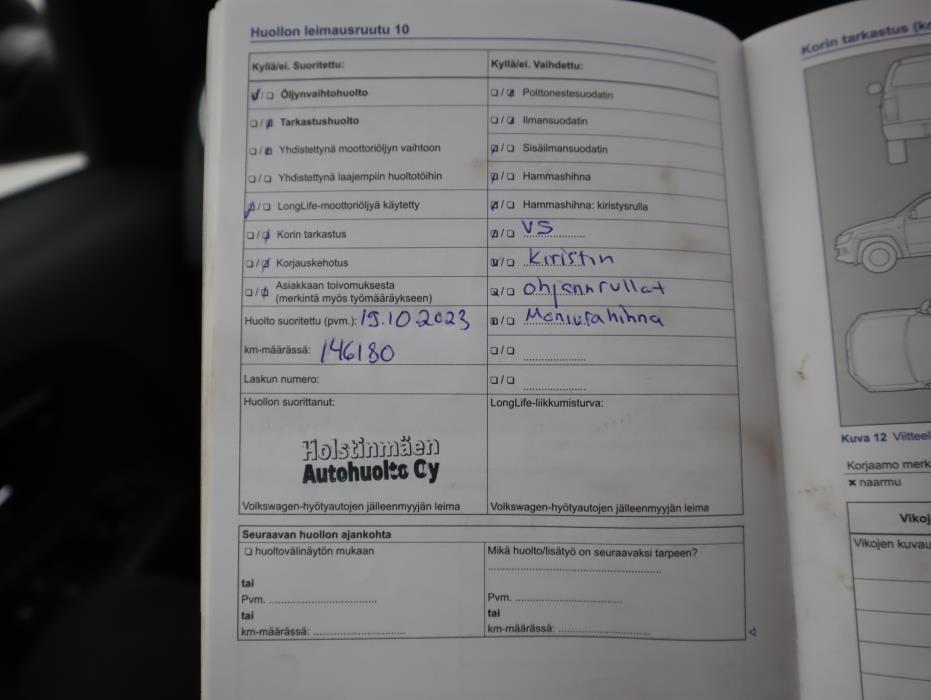 Huollon leimausruutu 10
Kyllä/ei. Suoritettu:
☑/☐ Öljynvaihtohuolto
☐/☑ Tarkastushuolto
☐/☑ Yhdistettynä moottoriöljyn vaihtoon
☐/☐ Yhdistettynä laajempiin huoltotöihin
☑/☐ LongLife-moottoriöljyä käytetty
☐/☑ Korin tarkastus
☐/☑ Korjauskehotus
☐/☑ Asiakkaan toivomuksesta
(merkintä myös työmääräykseen)
Huolto suoritettu (pvm.): 19.10.2023
km-määrässä: 146180
Laskun numero:
Huollon suorittanut:
Holstinmäen
Autohuolto Oy
Volkswagen-hyötyautojen jälleenmyyjän leima
Kyllä/ei. Vaihdettu:
☐/☑ Polttonestesuodatin
☐/☑ Ilmansuodatin
☑/☐ Sisäilmansuodatin
☑/☐ Hammashihna
☑/☐ Hammashihna: kiristysrulla
☑/☐ VS
☑/☐ Kiristin
☑/☐ ohjannrullat
☑/☐ Moniurahihna
☐/☐
☐/☐
LongLife-liikkumisturva:
Volkswagen-hyötyautojen jälleenmyyjän leima
Seuraavan huollon ajankohta
☐ huoltovälinäytön mukaan
tai
Pvm.
tai
km-määrässä:
Mikä huolto/lisätyö on seuraavaksi tarpeen?
Pvm.
tai
km-määrässä:
Korin tarkastus
Kuva 12
Korjaamo
× naarmu
Vikojen